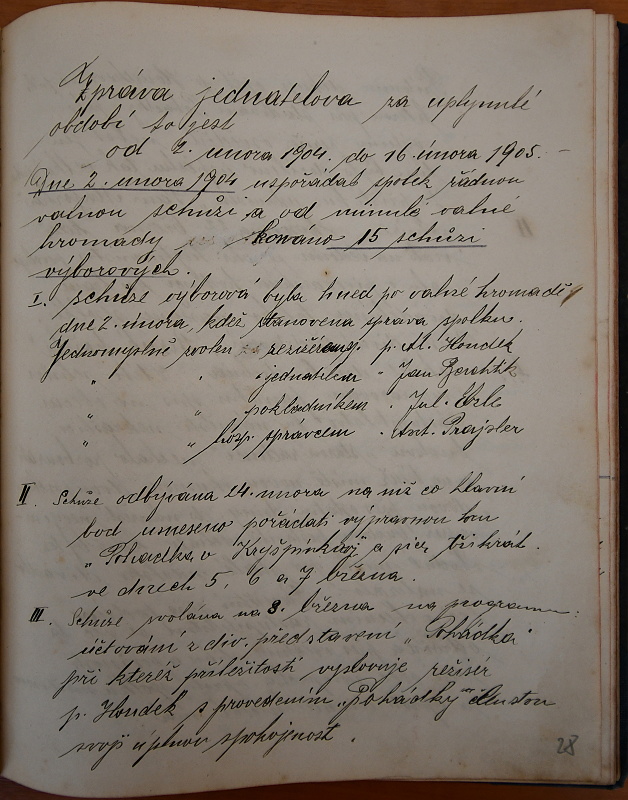 Zpráva jednatelova za uplynulé
období to jest
od 2. února 1904. do 16. února 1905. –
Dne 2. února 1904 uspořádal spolek řádnou
valnou schůzi a od minulé valné
hromady konáno 15 schůzí
výborových.
I. schůze výborová byla hned po valné hromadě
dne 2. února, kdež stanovena správa spolku.
Jednomyslně zvolen režisérem p. Al. Houdek
" " jednatelem " Jan
" " pokladníkem " Jul.
" " hosp. správcem " Ant. Prajsler
II. Schůze odbývána 24. února na níž co hlavní
bod usneseno pořádati výpravnou hru
„Pohádka o Kryšpínkovi" a sice třikrát.
ve dnech 5, 6 a 7 března.
III. Schůze svolána na 8. března na programu:
účtování z div. představení „Pohádka"
při kteréž příležitosti vyslovuje režisér
p. Houdek s provedením „Pohádky"
svojí úplnou spokojenost.
28